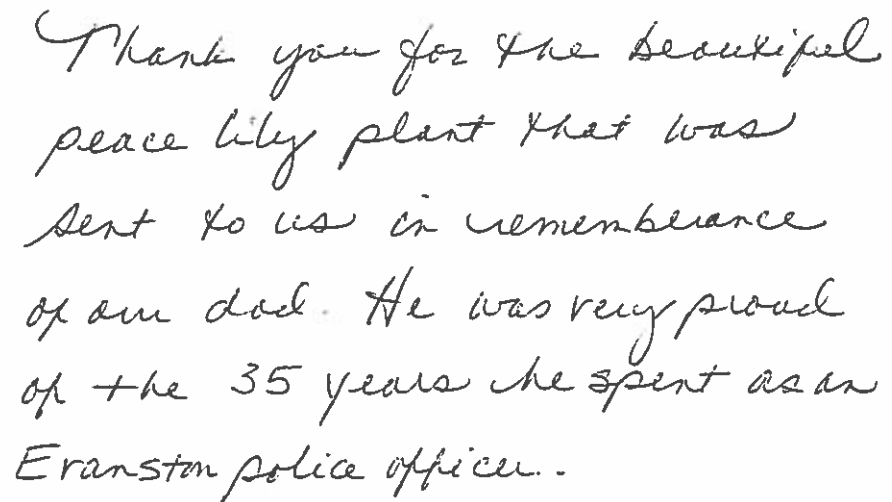 Thank you for the beautiful
peace lily plant that was
sent to us in rememberance
of our dad. He was very proud
of the 35 years he spent as an
Evanston police officer..